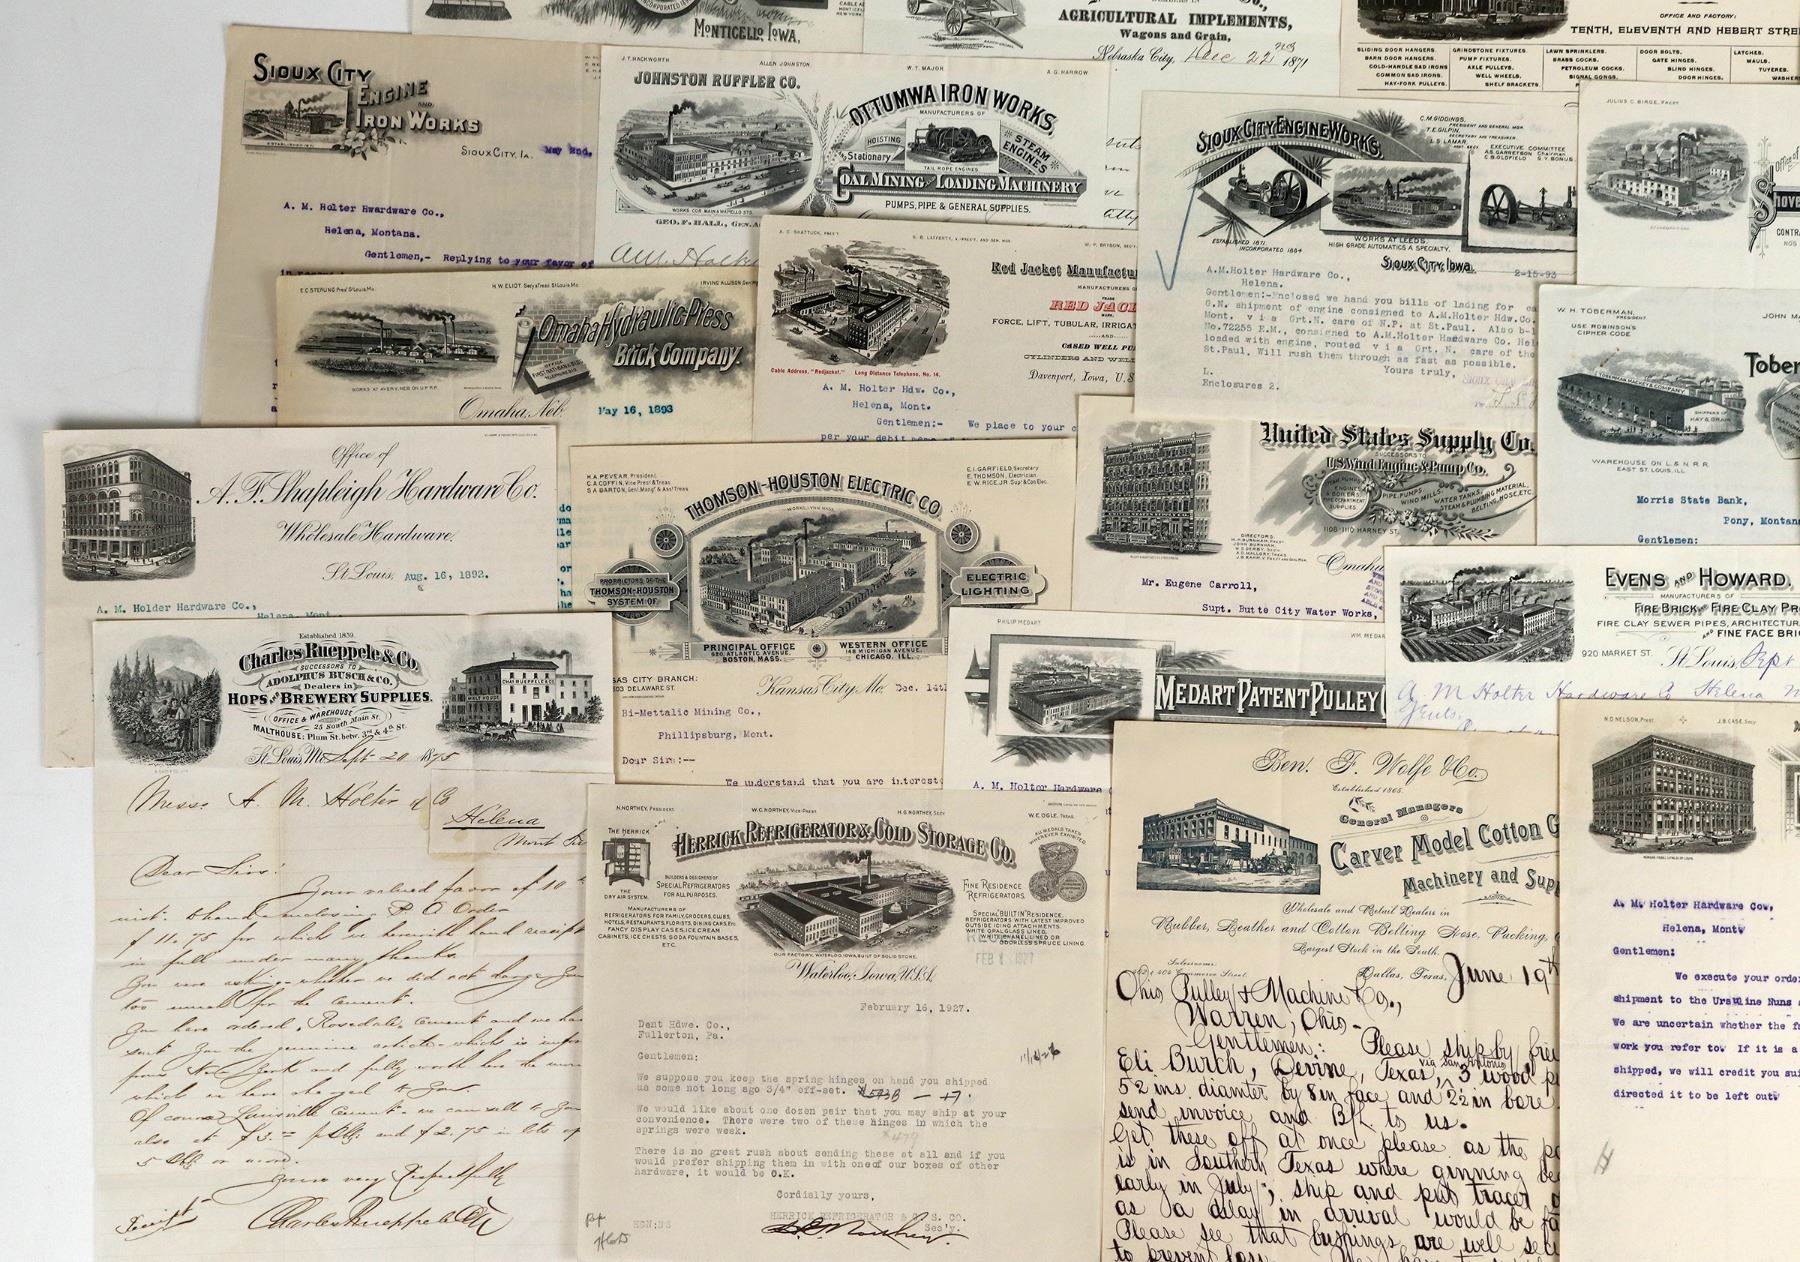 MONTICELLO, IOWA.
AGRICULTURAL IMPLEMENTS,
Wagons and Grain,
Nebraska City, Dec 22nd 1871
OFFICE AND FACTORY:
TENTH, ELEVENTH AND HEBERT STRE
SLIDING DOOR HANGERS.
BARN DOOR HANGERS.
COLD-HANDLE SAD IRONS
COMMON SAD IRONS.
HAY-FORK PULLEYS.
GRINDSTONE FIXTURES.
PUMP FIXTURES.
AXLE PULLEYS.
WELL WHEELS.
SHELF BRACKETS.
LAWN SPRINKLERS.
BRASS COCKS.
PETROLEUM COCKS.
SIGNAL GONGS.
DOOR BOLTS.
GATE HINGES.
BLIND HINGES.
DOOR HINGES.
LATCHES.
MAULS.
TUYERES.
WASHERS
SIOUX CITY
ENGINE
AND
IRON WORKS
ESTABLISHED 1871
SIOUX CITY, IA. May 2nd,
A. M. Holter Hwardware Co.,
Helena, Montana.
Gentlemen,- Replying to your favor of
J.T. HACKWORTH
ALLEN JOHNSTON
W.T. MAJOR
A.G. HARROW
JOHNSTON RUFFLER CO.
OTTUMWA IRON WORKS,
MANUFACTURERS OF
HOISTING
Stationary
TAIL ROPE ENGINES
STEAM
ENGINES
COAL MINING AND LOADING MACHINERY
PUMPS, PIPE & GENERAL SUPPLIES.
WORKS COR MAIN & WAPELLO STS.
GEO. F. HALL, GEN. A
SIOUX CITY ENGINE WORKS.
C.M. GIDDINGS,
PRESIDENT AND GENERAL MGR.
T.E. GILPIN,
SECRETARY AND TREASURER
L.S. LAMAR,
EXECUTIVE COMMITTEE
A.S. GARRETSON Chairman
C.B. OLDFIELD G.Y. BONUS
ESTABLISHED 1871.
INCORPORATED 1884
WORKS AT LEEDS.
HIGH GRADE AUTOMATICS A SPECIALTY.
Sioux City, Iowa, 2-15-93
A.M.Holter Hardware Co.,
Helena.
Gentlemen:-Enclosed we hand you bills of lading for ca
G.N. shipment of engine consigned to A.M.Holter Hdw.Co.
Mont. via Grt.N. care of N.P. at St.Paul. Also b-l
No.72255 E.M., consigned to A.M.Holter Hardware Co. Hel
loaded with engine, routed via Grt. N. care of the
St.Paul. Will rush them through as fast as possible.
Yours truly,
L.
Enclosures 2.
JULIUS C. BIRGE, PREST
Office of
SHOVE
CONTRA
E.C STERLING Pres't St Louis Mo.
H.W. ELIOT, Sec'y & Treas. St Louis, Mo.
IRVING ALLISON Gen Mgr
Omaha Hydraulic-Press
Brick Company.
OFFICE
FIRST NAT'L BANK BLDG
WORKS AT AVERY, NEB ON U.P.R.R.
Omaha, Neb. May 16, 1893
A. C. SHATTUCK, PRES'T.
G. B. LAFFERTY, V.-PREST. AND GEN. MGR.
W. P. BRYSON, SEC'Y
Red Jacket Manufactu
MANUFACTURERS O
TRADE
RED JAC
MARK
FORCE, LIFT, TUBULAR, IRRIGAT
AND
CASED WELL PU
CYLINDERS AND WEL
Cable Address, "Redjacket." Long Distance Telephone, No. 14.
Davenport, Iowa, U.S.
A. M. Holter Hdw. Co.,
Helena, Mont.
Gentlemen:- We place to your c
per your debit memo
W. H. TOBERMAN,
PRESIDENT
JOHN MA
USE ROBINSON'S
CIPHER CODE
Tober
TOBERMAN MACKEY & COMPANY
SHIPPERS OF
HAY & GRAIN
WAREHOUSE ON L. & N.R.R.
EAST ST. LOUIS, ILL
Morris State Bank,
Pony, Montana
Gentlemen:
Office of
A. F. Shapleigh Hardware Co.
Wholesale Hardware.
St. Louis, Aug. 16, 1892.
A. M. Holder Hardware Co.,
Helena, Mont.
H.A. PEVEAR, President
C.A. COFFIN, Vice Pres't & Treas.
S.A. BARTON, Gen'l Mang'r & Ass't Treas.
E.I. GARFIELD, Secretary
E. THOMSON, Electrician
E.W. RICE, JR, Sup't & Con. Elec.
THOMSON-HOUSTON ELECTRIC CO.
WORKS, LYNN, MASS.
PROPRIETORS OF THE
THOMSON-HOUSTON
SYSTEM OF
ELECTRIC
LIGHTING
PRINCIPAL OFFICE
620, ATLANTIC AVENUE,
BOSTON, MASS.
WESTERN OFFICE
148 MICHIGAN AVENUE,
CHICAGO, ILL.
SAS CITY BRANCH:
603 DELAWARE ST.
Kansas City, Mo. Dec. 14th
Bi-Mettalic Mining Co.,
Phillipsburg, Mont.
Dear Sirs:--
We understand that you are interest
United States Supply Co.
SUCCESSORS TO
U.S. Wind Engine & Pump Co.
STEAM PUMPS,
ENGINES
& BOILERS,
SUPPLIES.
PIPE, PUMPS,
WIND MILLS,
WATER TANKS,
STEAM & PLUMBING MATERIAL,
BELTING, HOSE, ETC.
1108-1110 HARNEY ST.
DIRECTORS
Omaha
Mr. Eugene Carroll,
Supt. Butte City Water Works,
EVENS AND HOWARD.
MANUFACTURERS OF
FIRE BRICK AND FIRE CLAY PR
FIRE CLAY SEWER PIPES, ARCHITECTURA
AND FINE FACE BRIC
920 MARKET ST. St. Louis, Sept
A. M Holter Hardware Co Helena M
Gents:
Established 1839.
Charles Rueppele & Co.
SUCCESSORS TO
ADOLPHUS BUSCH & CO.
Dealers in
HOPS AND BREWERY SUPPLIES.
OFFICE & WAREHOUSE
28 South Main St.
MALTHOUSE: Plum St. betw. 3rd & 4th St.
MALT HOUSE
CHAS RUEPPELE & CO.
St. Louis, Mo. Sept 20 1875
Messrs A. M. Holter & Co
Helena
Dear Sirs:
Your valued favor of 10th
inst. to hand enclosing P. O. Order
$ 11.75 for which we herewith hand receipt
in full under many thanks.
You were asking whether we did not charge you
too much for the cement.
You have ordered, Rosedale, cement and we have
sent you the genuine article which is
from New York and fully worth the
which we have charged to you.
Of course Louisville cement we can sell to you
also at $3.00 p Bbl. and $2.75 in lots of
5 Bbls or more.
Yours very Respectfully
Charles Rueppele & Co
PHILIP MEDART
WM. MEDAR
MEDART PATENT PULLEY
A. M. Holter Hardware
N. NORTHEY, PRESIDENT.
W.C. NORTHEY, VICE-PREST.
H.G. NORTHEY, SECY.
W.E. OGLE, TREAS.
THE HERRICK
THE
DRY AIR SYSTEM.
HERRICK REFRIGERATOR & COLD STORAGE CO.
BUILDERS & DESIGNERS OF
SPECIAL REFRIGERATORS
FOR ALL PURPOSES.
MANUFACTURERS OF
REFRIGERATORS FOR FAMILY, GROCERS, CLUBS,
HOTELS, RESTAURANTS, FLORISTS, DINING CARS, ETC.
FANCY DISPLAY CASES, ICE CREAM
CABINETS, ICE CHESTS, SODA FOUNTAIN BASES,
ETC.
ALL MEDALS TAKEN
WHEREVER EXHIBITED.
FINE RESIDENCE
REFRIGERATORS.
SPECIAL "BUILT IN" RESIDENCE
REFRIGERATORS WITH LATEST IMPROVED
OUTSIDE ICING ATTACHMENTS.
WHITE OPAL GLASS LINED.
WHITE ENAMEL LINED OR
ODORLESS SPRUCE LINING.
OUR FACTORY, WATERLOO, IOWA, BUILT OF SOLID STONE.
Waterloo, Iowa, U.S.A.
February 16, 1927.
Dent Hdwe. Co.,
Fullerton, Pa.
Gentlemen:
We suppose you keep the spring hinges on hand you shipped
us some not long ago 3/4" off-set.
We would like about one dozen pair that you may ship at your
convenience. There were two of these hinges in which the
springs were weak.
There is no great rush about sending these at all and if you
would prefer shipping them in with one of our boxes of other
hardware, it would be O.K.
Cordially yours,
HERRICK REFRIGERATOR & C. S. CO.
Sec'y.
HGN:NS
Ben. F. Wolfe & Co.
Established 1865.
General Managers
Carver Model Cotton G
Machinery and Supp
Wholesale and Retail Dealers in
Rubber, Leather and Cotton Belting, Hose, Packing,
Largest Stock in the South.
Salesrooms:
Commerce Street.
Dallas, Texas, June 19th
Ohio Pulley & Machine Co.,
Warren, Ohio-
Gentlemen: Please ship by frei
via San Antonio
Eli Burch, Devine, Texas, 3 wood p
52 ins. diamter by 8 in face and 2½ in bore
send invoice and B/L to us.
Get these off at once please as the pa
is in Southern Texas where ginning be
early in July; ship and put tracer
as a delay in arrival would be fa
Please see that bushings are well sec
to prevent loss.
N.O. NELSON, Prest.
J.B. CASE, Secy
A. M. Holter Hardware Cow,
Helena, Montv
Gentlemen:
We execute your order
shipment to the Ursuline Nuns
We are uncertain whether the f
work you refer tow If it is a
shipped, we will credit you sui
directed it to be left outv